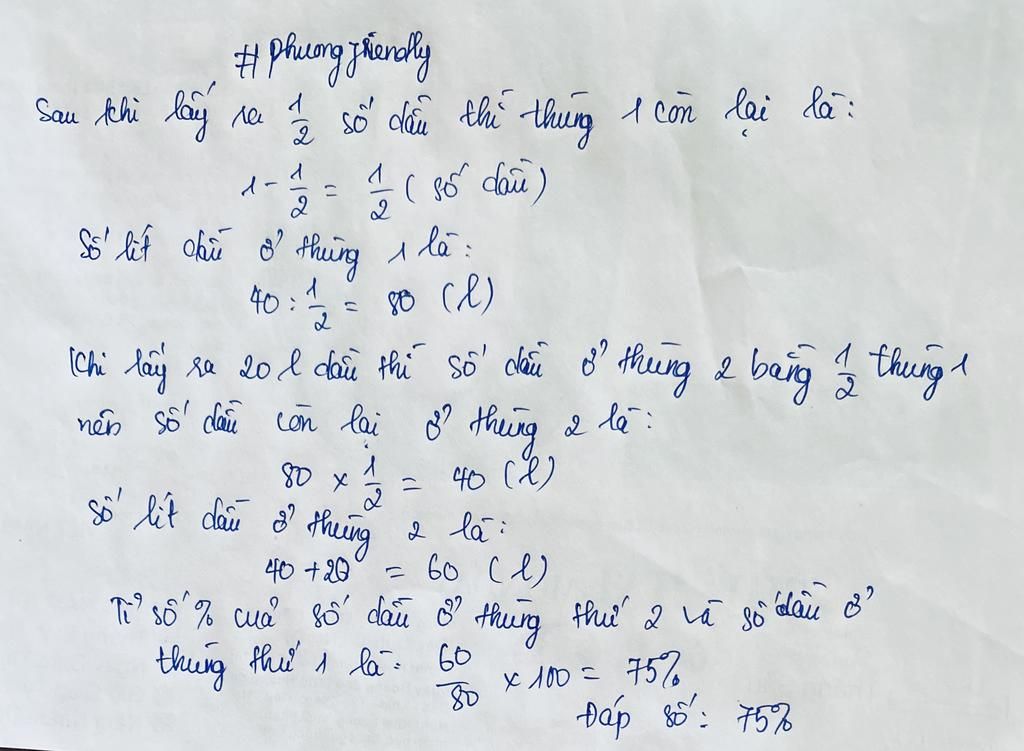 # phuongfriendly
Sau khi lấy ra 1/2 số dầu thì thùng 1 còn lại là:
1 - 1/2 = 1/2 (số dầu)
Số lít dầu ở thùng 1 là:
40 : 1/2 = 80 (l)
Khi lấy ra 20 l dầu thì số dầu ở thùng 2 bằng 1/2 thùng 1
nên số dầu còn lại ở thùng 2 là:
80 x 1/2 = 40 (l)
Số lít dầu ở thùng 2 là:
40 + 20 = 60 (l)
Tỉ số % của số dầu ở thùng thứ 2 và số dầu ở
thùng thứ 1 là: 60/80 x 100 = 75%
Đáp số: 75%